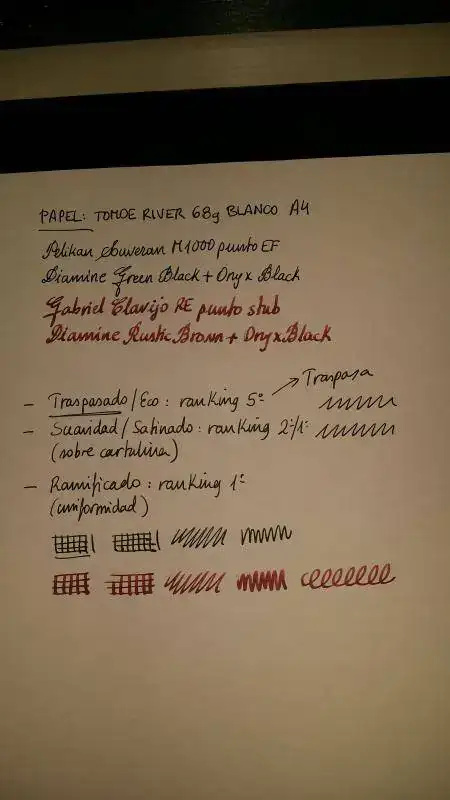 PAPEL: TOMOE RIVER 68g BLANCO A4
Pelikan Souveran M1000 punto EF
Diamine Green Black + Onyx Black
Gabriel Clavijo RE punto stub
Diamine Rustic Brown + Onyx Black
Traspasa
- Traspasado/Eco: ranking 5º
- Suavidad/Satinado: ranking 2º/1º
(sobre cartulina)
- Ramificado: ranking 1º
(uniformidad)